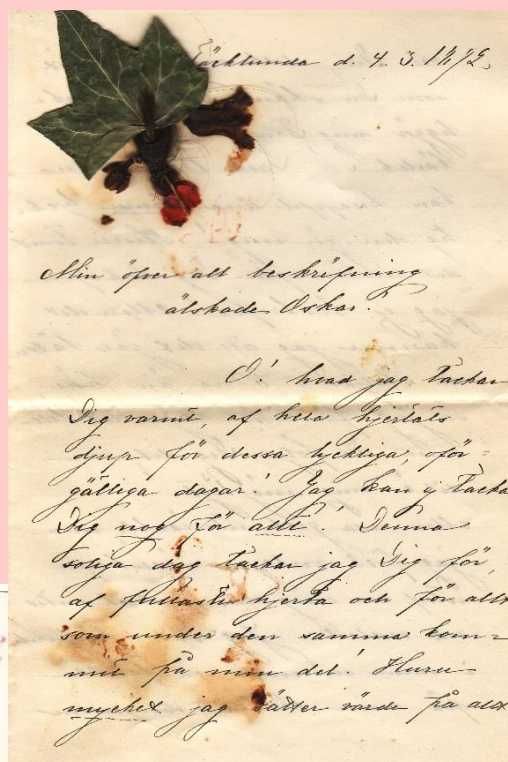 Täcklunda d. 4. 3. 1892.
Min öfver all beskrifning
älskade Oskar!
O! hvad jag tackar
Dig varmt, af hela hjertats
djup för dessa lyckliga, oför=
gätliga dagar! Jag kan ej tacka
Dig nog för allt! Denna
soliga dag tackar jag Dig för,
af fullaste hjerta och för allt
som under den samma kom=
mit på min del! Huru
mycket jag sätter värde på allt